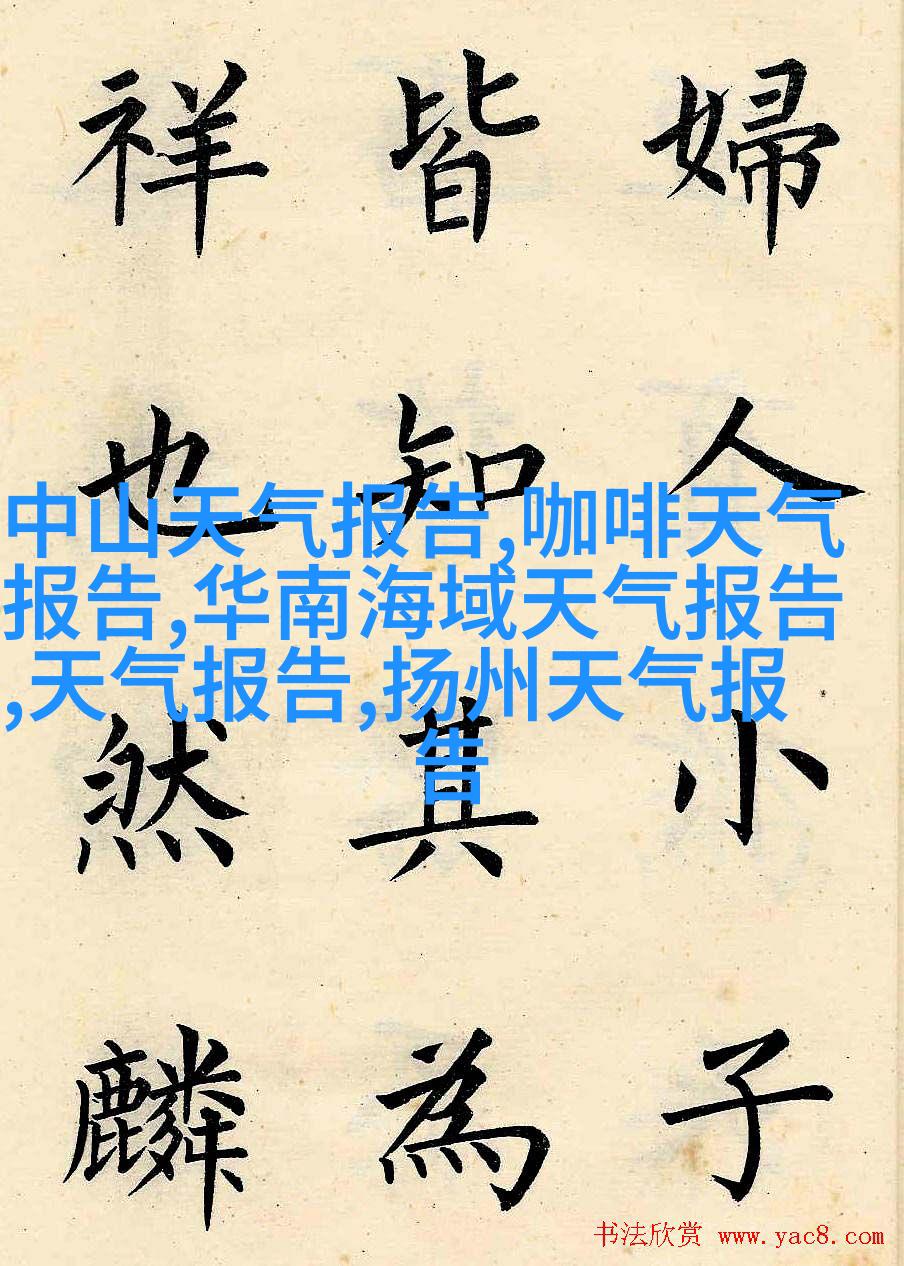 婦人小子
皆知其為
祥也然麟
中山天气报告,咖啡天气
报告,华南海域天气报告
,天气报告,扬州天气报
告
书法欣赏 www.yac8.com